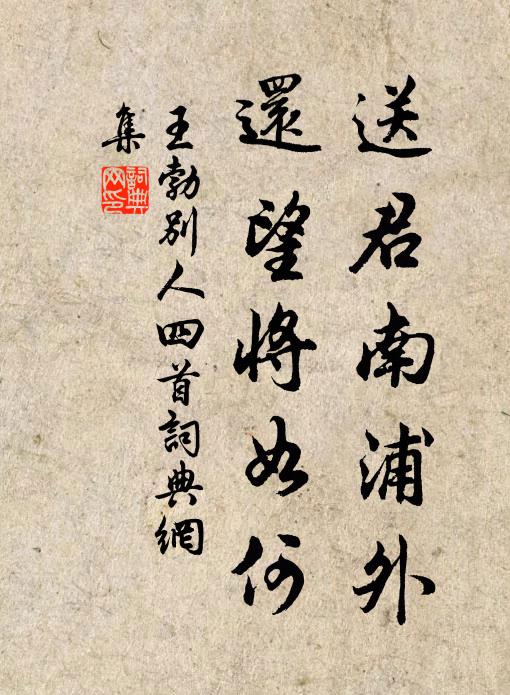 送君南浦外
還望將如何
王勃別人四首詞典網
集
詞典
网印